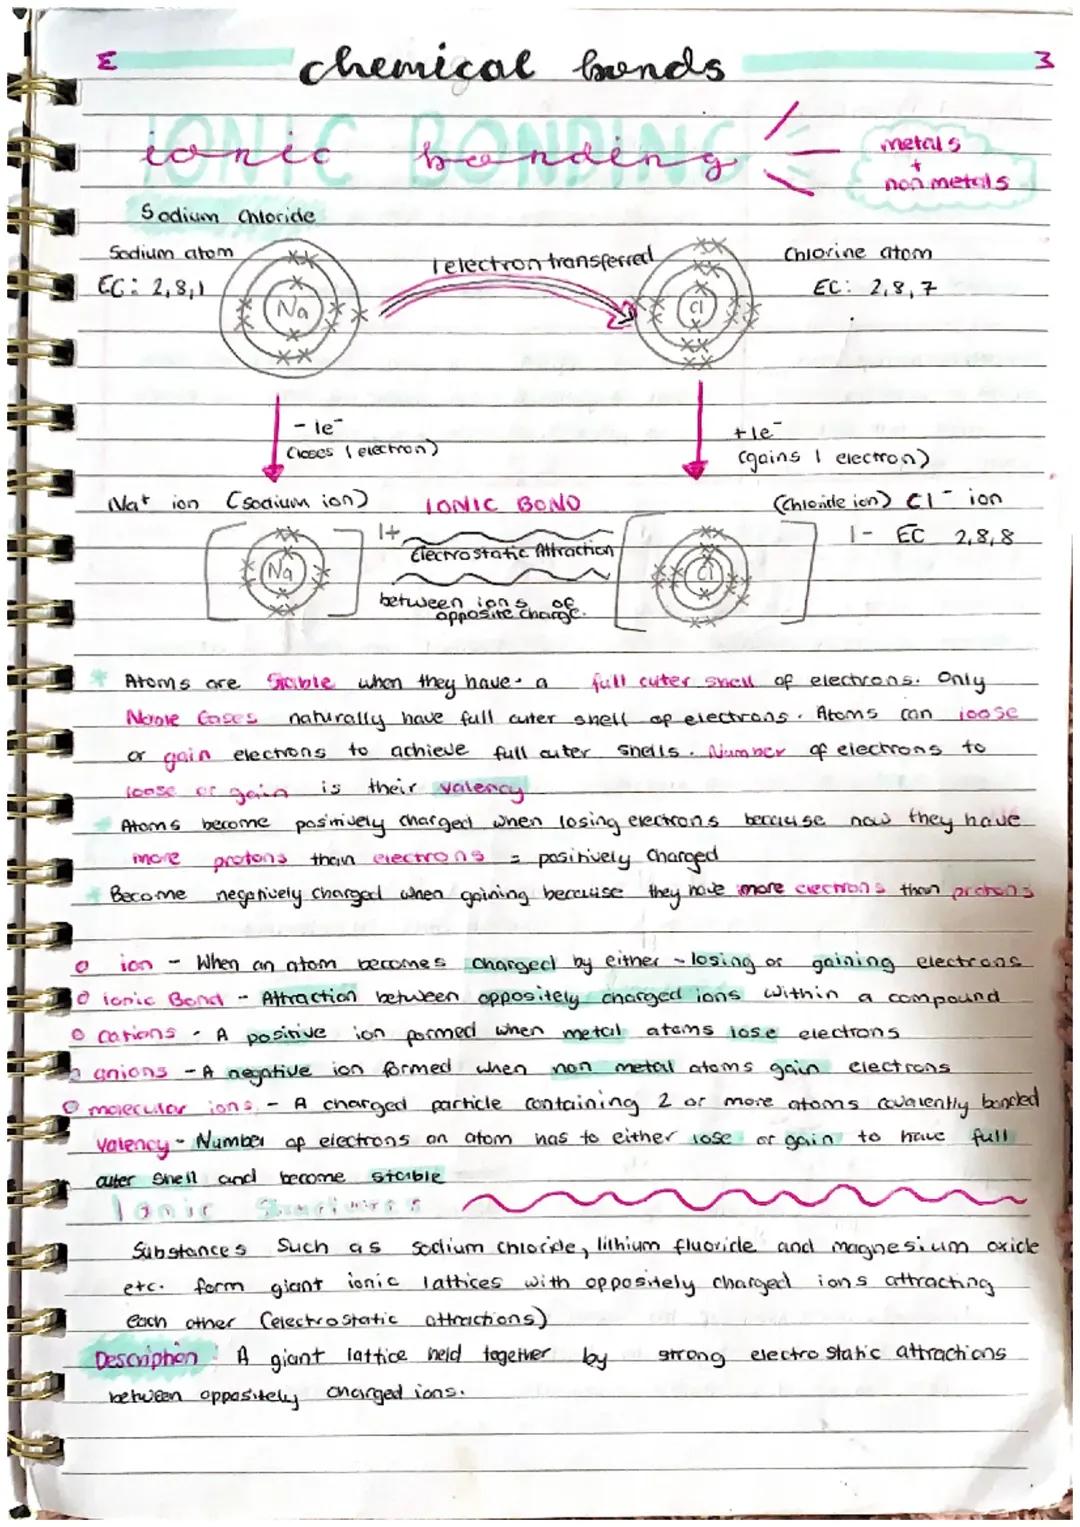 chemical bonds
ionic bonding
IONIC BONDING
metals
+
non metals
Sodium Chloride
Sodium atom
EC: 2,8,1
Na
1 electron transferred
Cl
Chlorine atom
EC: 2,8,7
- 1e⁻
(loses 1 electron)
+1e⁻
(gains 1 electron)
Na⁺ ion (sodium ion)
IONIC BOND
(Chloride ion) Cl⁻ ion
1+
1- EC 2,8,8
Na
Electrostatic Attraction
Cl
between ions of
opposite charge.
* Atoms are Stable when they have a full outer shell of electrons. Only
Noble Gases naturally have full outer shell of electrons. Atoms can loose
or gain electrons to achieve full outer shells. Number of electrons to
loose or gain is their valency
* Atoms become positively charged when losing electrons because now they have
more protons than electrons = positively charged
* Become negatively charged when gaining because they have more electrons than protons
o ion - When an atom becomes charged by either - losing or gaining electrons
o ionic Bond - Attraction between oppositely charged ions within a compound
o cations - A positive ion formed when metal atoms lose electrons
o anions - A negative ion formed when non metal atoms gain electrons
o molecular ions - A charged particle containing 2 or more atoms covalently bonded
valency - Number of electrons an atom has to either lose or gain to have full
outer shell and become stable
Ionic Structures
Substances such as sodium chloride, lithium fluoride and magnesium oxide
etc. form giant ionic lattices with oppositely charged ions attracting
each other (electrostatic attractions)
Description: A giant lattice held together by strong electrostatic attractions
between oppositely charged ions.